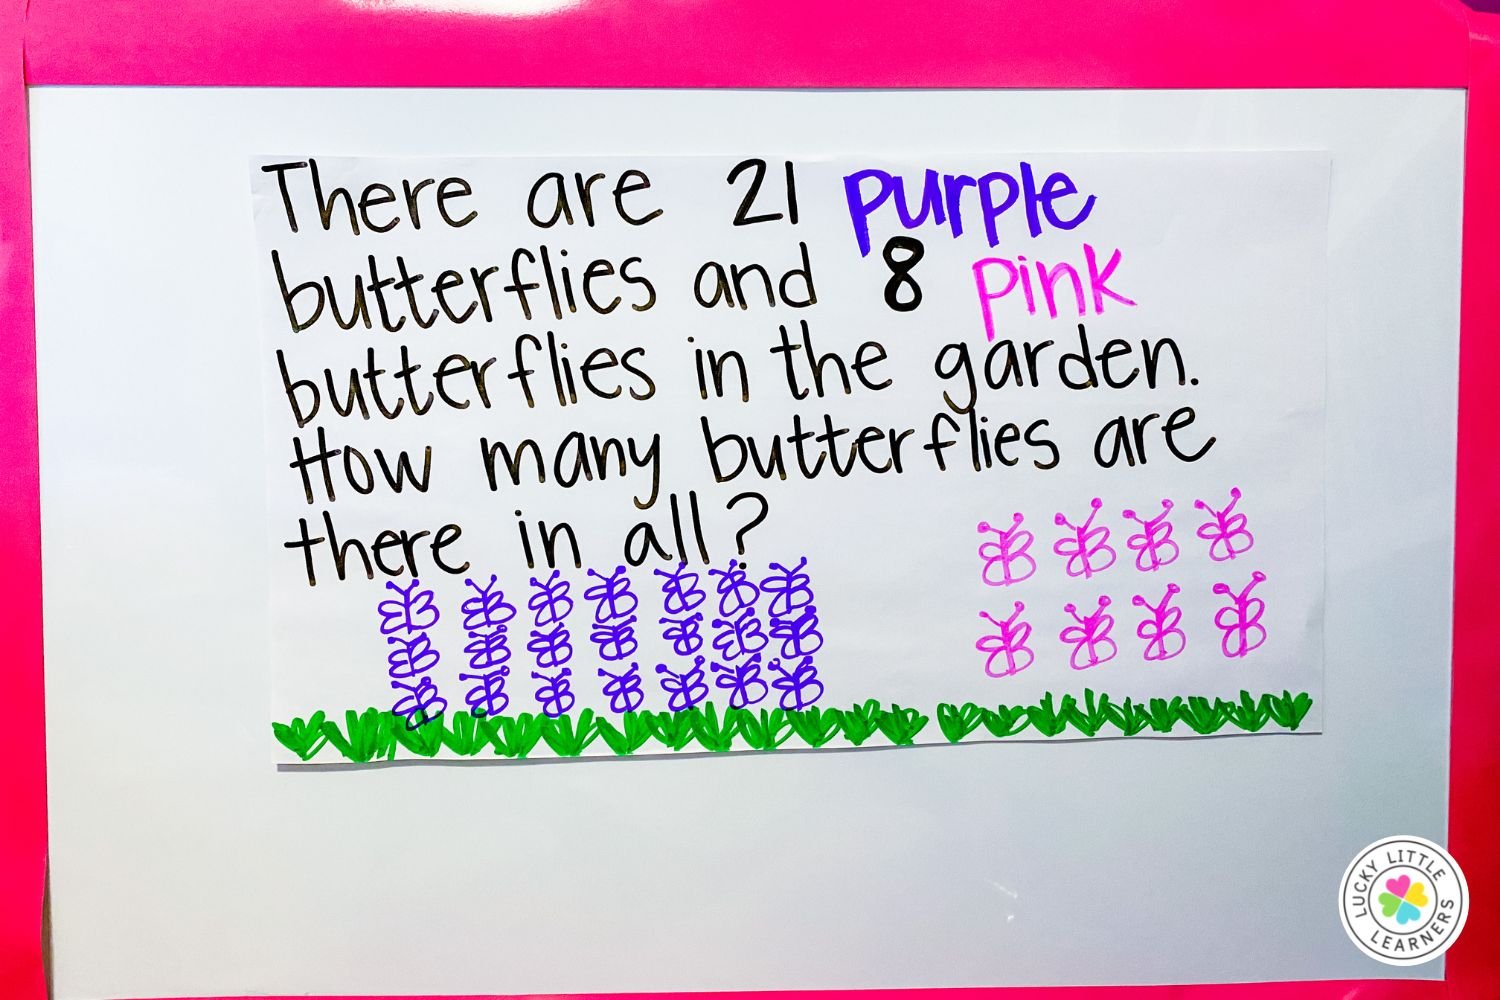 There are 21 purple
butterflies and 8 pink
butterflies in the garden.
How many butterflies are
there in all?
LUCKY LITTLE
LEARNERS